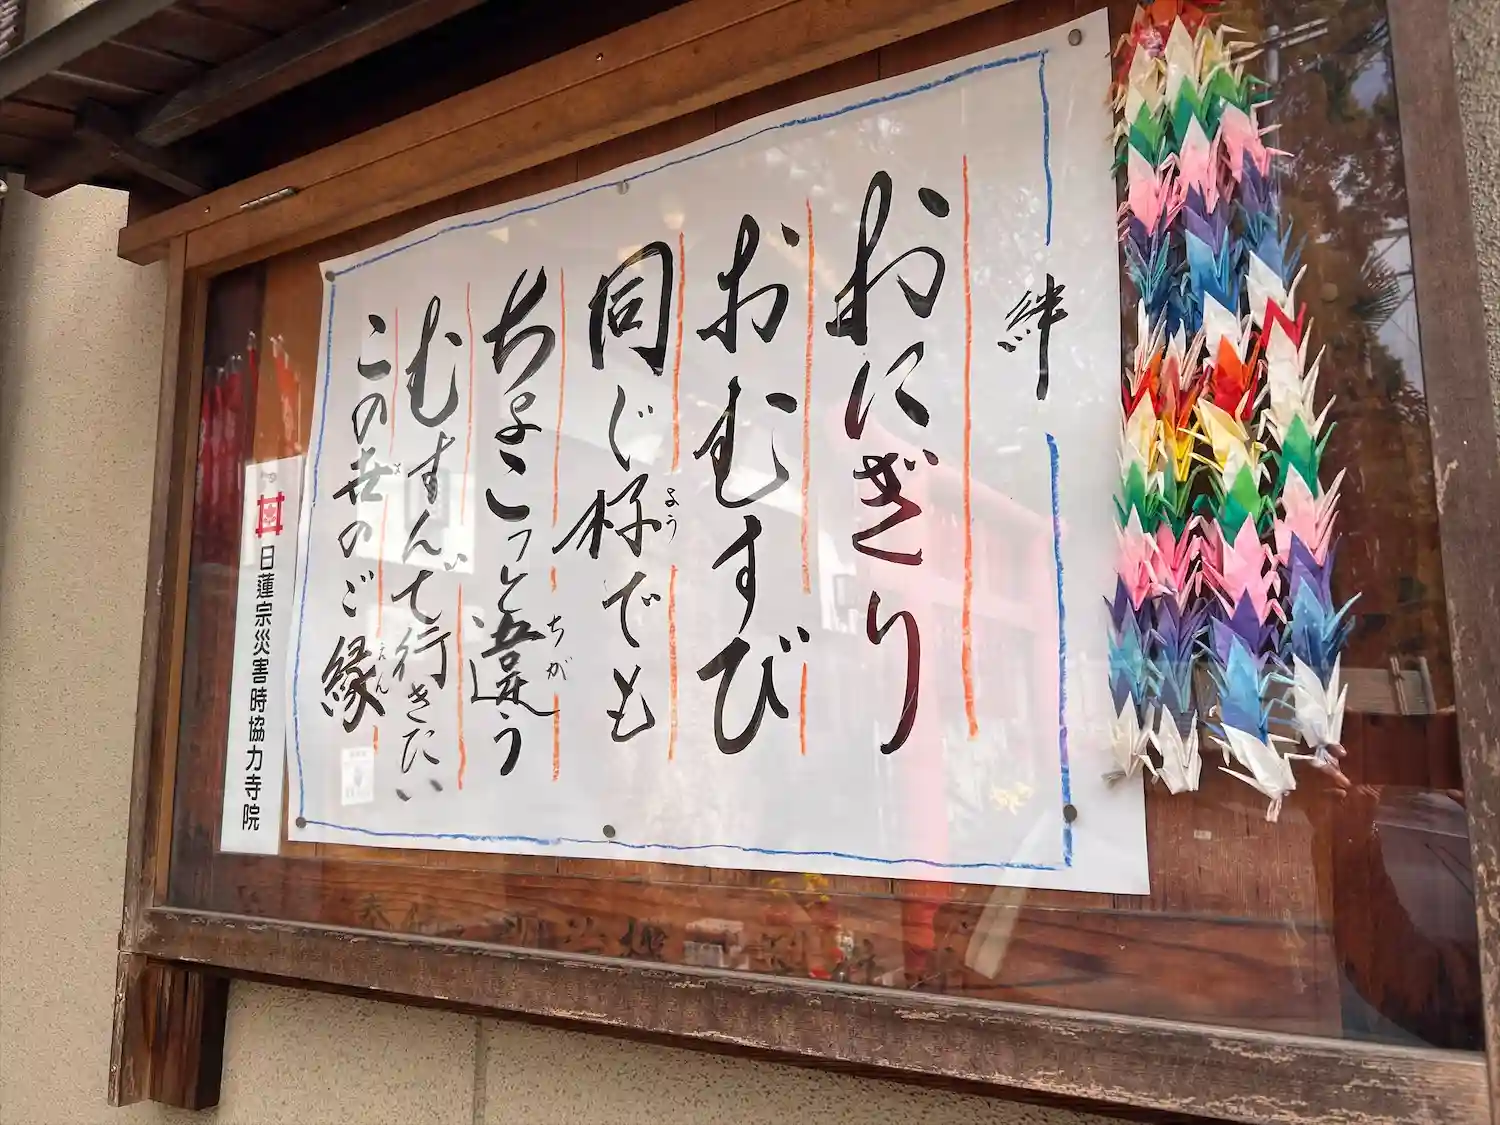 絆
おにぎり
おむすび
同じ様でも
よう
ちょこっと違う
ちが
むすんで行きたい
この世のご縁
よ
えん
日蓮宗災害時協力寺院